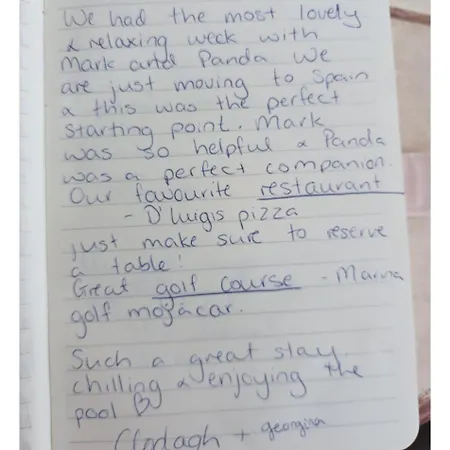 We had the most lovely
& relaxing week with
Mark and Panda We
are just moving to Spain
& this was the perfect
starting point. Mark
was so helpful & Panda
was a perfect companion.
Our favourite restaurant
- D'luigis pizza
just make sure to reserve
a table!
Great golf course - Marina
golf mojácar.
Such a great stay
chilling & enjoying the
pool
Clodagh + georgina